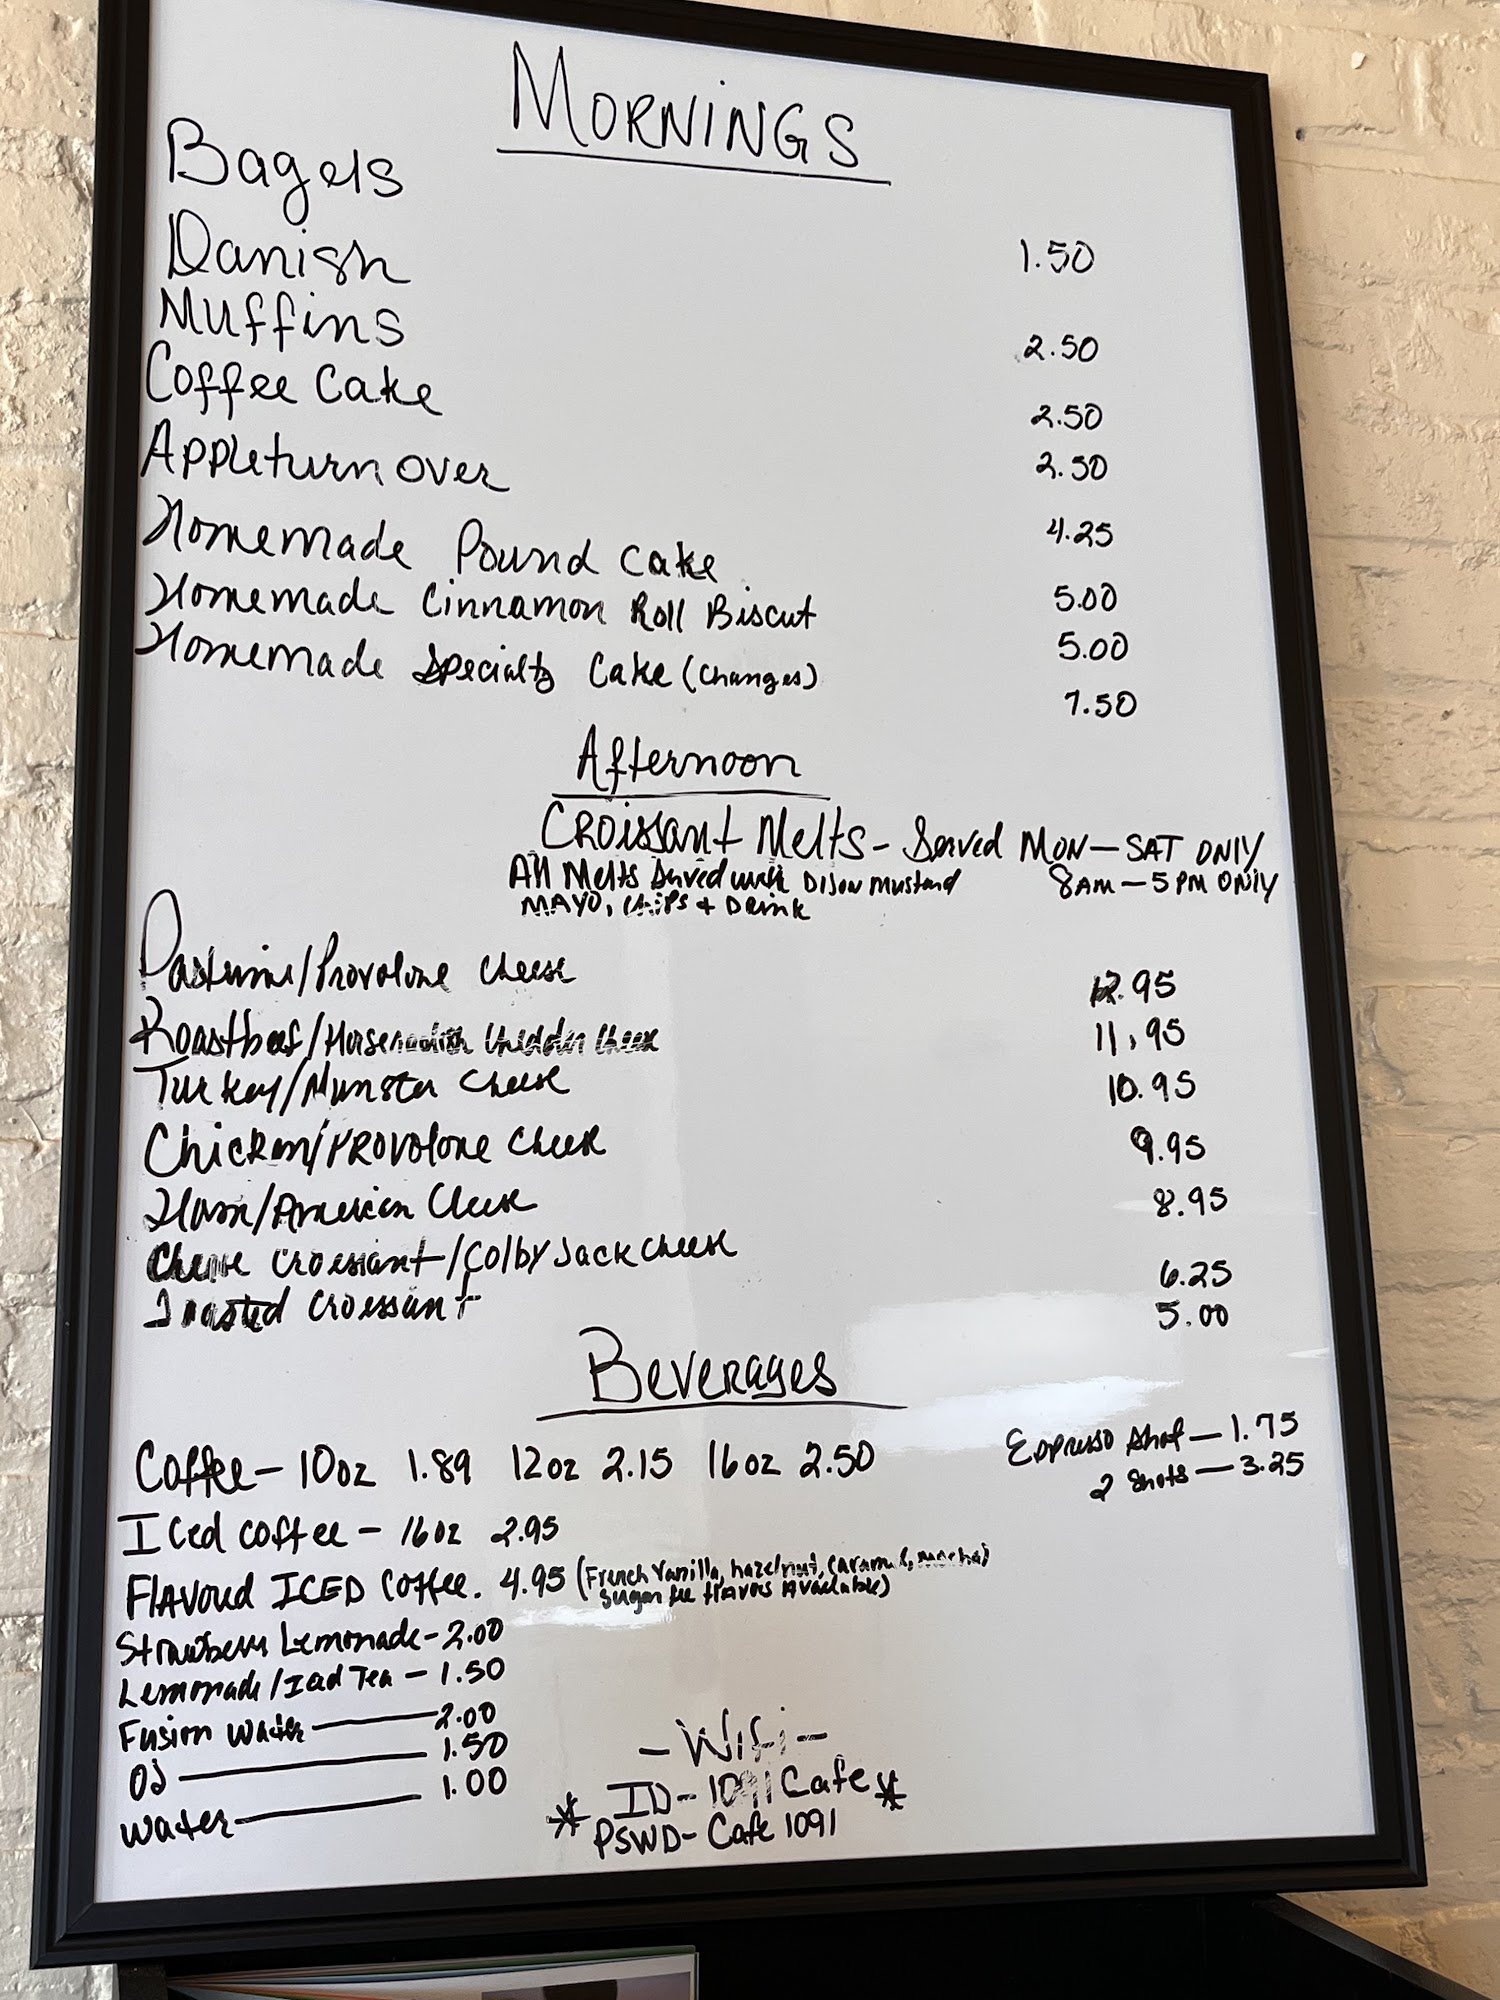 MORNINGS
Bagels 1.50
Danish 2.50
Muffins 2.50
Coffee Cake 2.50
Appleturnover 4.25
Homemade Pound Cake 5.00
Homemade Cinnamon Roll Biscut 5.00
Homemade Specialty Cake (Changes) 7.50
Afternoon
CROissant Melts - Served MON - SAT ONLY
All Melts Served with Dijon Mustard 8AM - 5PM ONLY
MAYO, Chips + Drink
Pastrami/Provolone Cheese 12.95
Roastbeef/Horseradish Cheddar Cheese 11.95
Turkey/Munster Cheese 10.95
Chicken/PROVOlone Cheese 9.95
Ham/American Cheese 8.95
Cheese Croissant/Colby Jack Cheese 6.25
Toasted Croissant 5.00
Beverages
Coffee - 10oz 1.89 12oz 2.15 16oz 2.50 Espresso Shot - 1.75
2 Shots - 3.25
Iced coffee - 16oz 2.95
FlAVored ICED Coffee. 4.95 (French Vanilla, hazelnut, Caramel, mocha)
Sugar free flavors Available)
Strawberry Lemonade - 2.00
Lemonade/Iced Tea - 1.50
Fusion Water - 2.00
OJ - 1.50
Water - 1.00
- Wifi -
* ID - 1091 Cafe *
PSWD - Cafe 1091